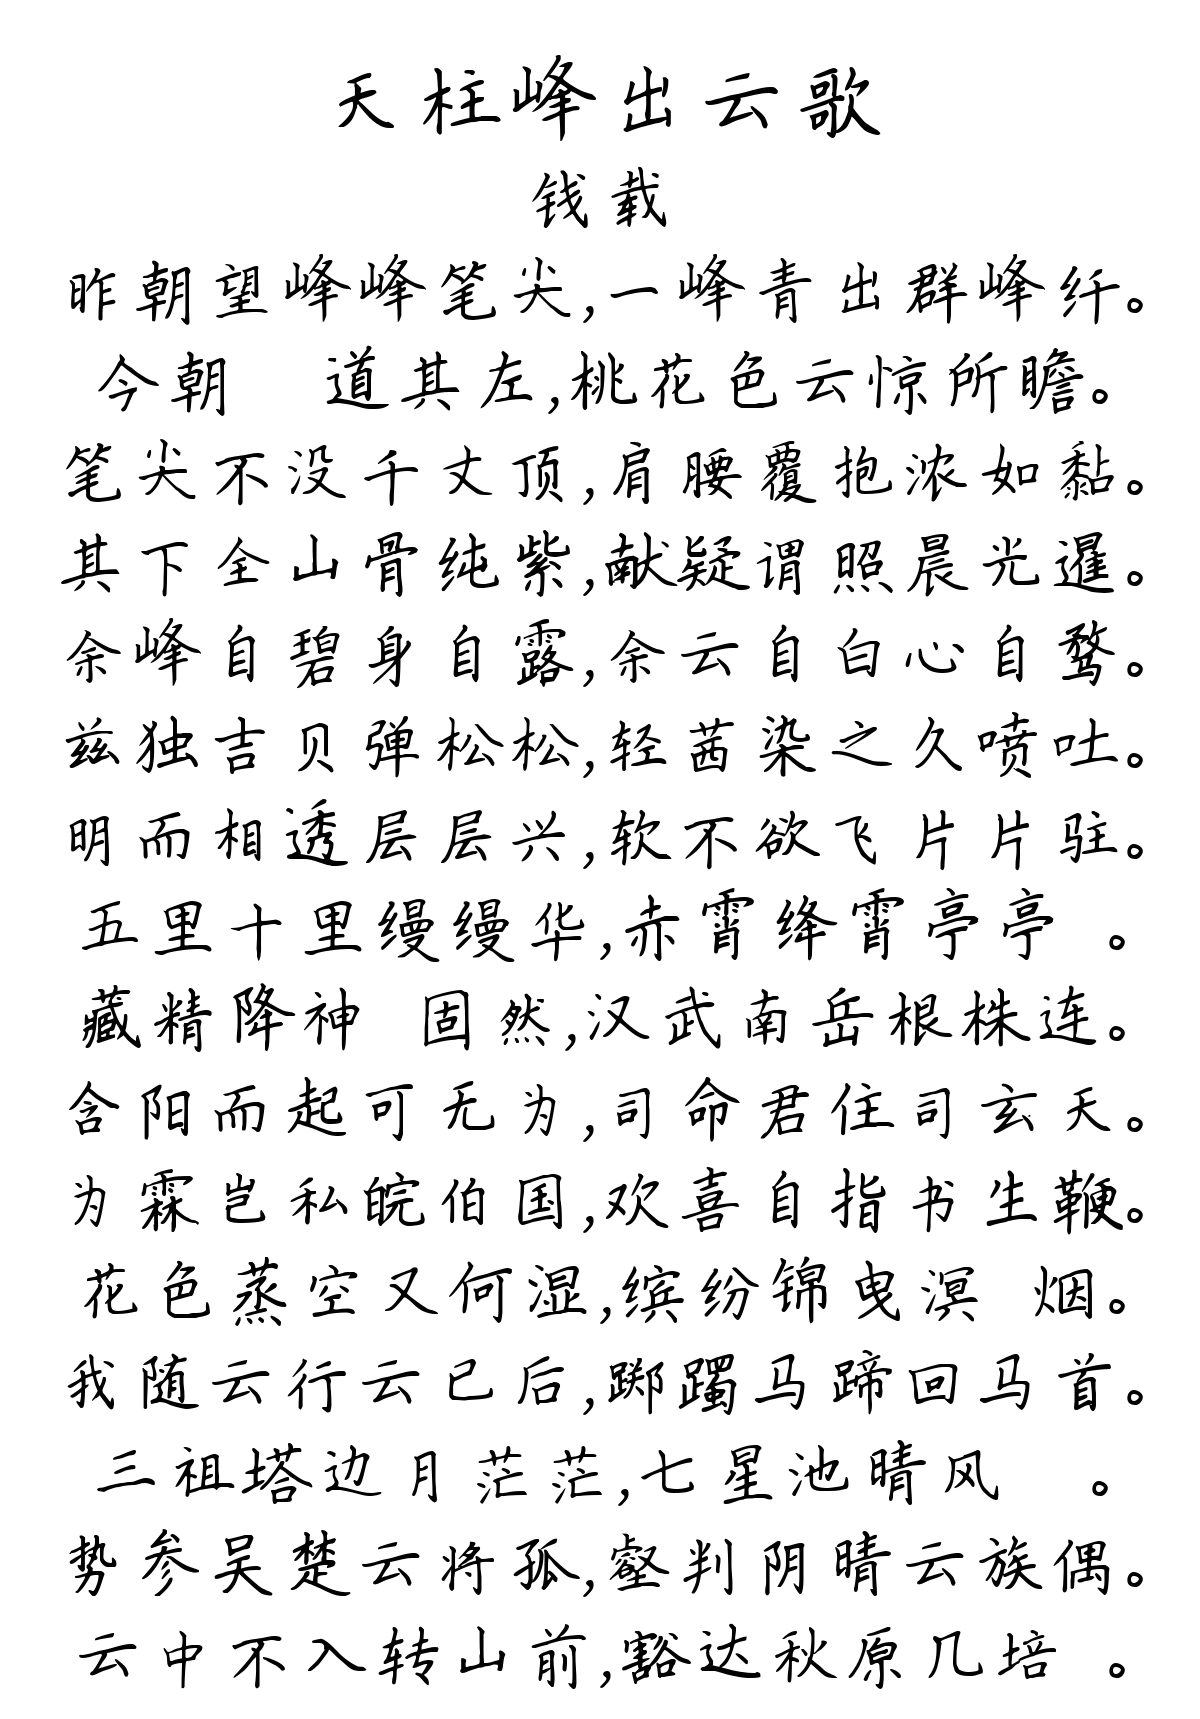 天柱峰出云歌
钱载
昨朝望峰峰笔尖,一峰青出群峰纤。
今朝 道其左,桃花色云惊所瞻。
笔尖不没千丈顶,肩腰覆抱浓如黏。
其下全山骨纯紫,献疑谓照晨光暹。
余峰自碧身自露,余云自白心自鹜。
兹独吉贝弹松松,轻茜染之久喷吐。
明而相透层层兴,软不欲飞片片驻。
五里十里缦缦华,赤霄绛霄亭亭 。
藏精降神 固然,汉武南岳根株连。
含阳而起可无为,司命君住司玄天。
为霖岂私皖伯国,欢喜自指书生鞭。
花色蒸空又何湿,缤纷锦曳溟 烟。
我随云行云已后,踯躅马蹄回马首。
三祖塔边月茫茫,七星池晴风 。
势参吴楚云将孤,壑判阴晴云族偶。
云中不入转山前,豁达秋原几培 。